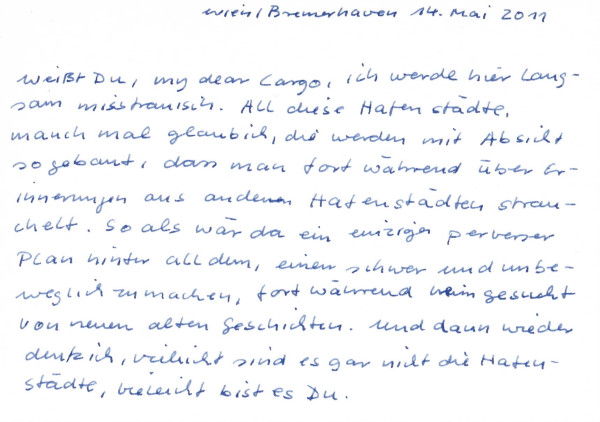 Wien/Bremerhaven 14. Mai 2011
Weißt Du, my dear Cargo, ich werde hier lang-
sam misstrauisch. All diese Hafenstädte,
manchmal glaub ich, die werden mit Absicht
so gebaut, dass man fortwährend über Er-
innerungen aus anderen Hafenstädten strau-
chelt. So als wär da ein einziger perverser
Plan hinter all dem, einen schwer und unbe-
weglich zu machen, fortwährend heimgesucht
von neuen alten Geschichten. Und dann wieder
denk ich, vielleicht sind es gar nicht die Hafen-
städte, vielleicht bist es Du.